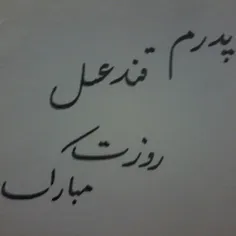 پدرم قند عسل
روزت مبارک